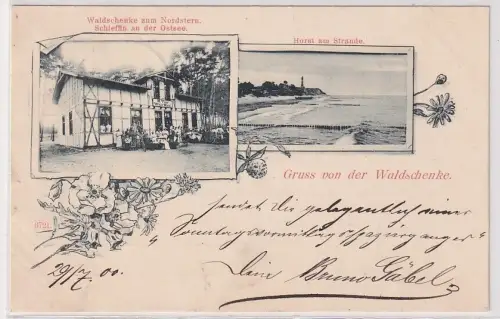 Waldschenke zum Nordstern.
Schleffin an der Ostsee.
Horst am Strande.
Gruss von der Waldschenke.
sendet Dir gelegentlich eines
Sonntagvormittag
Dein Bruno Göbel
29/7. 00.